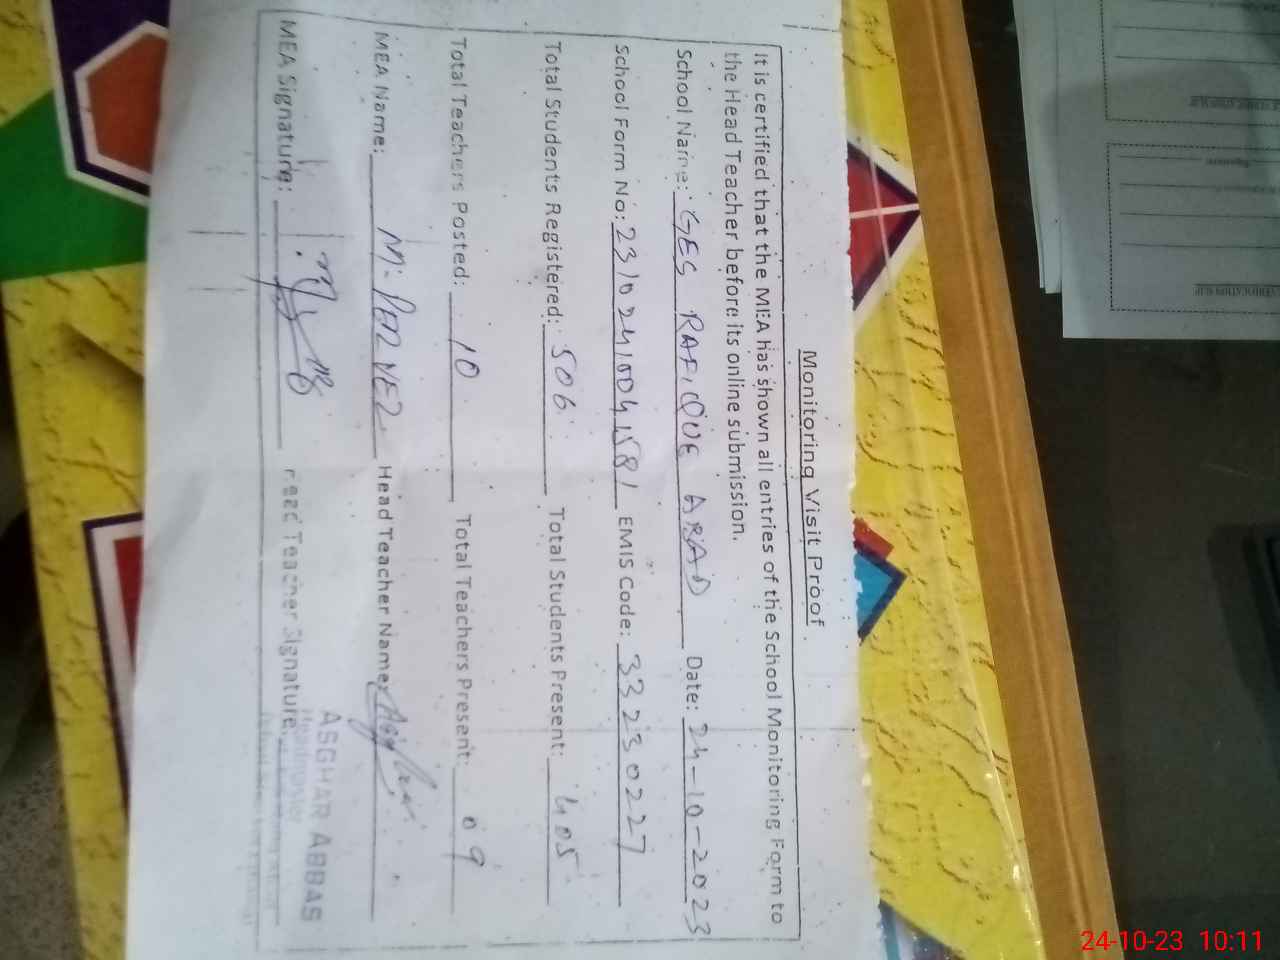 Monitoring Visit Proof
It is certified that the MEA has shown all entries of the School Monitoring Form to
the Head Teacher before its online submission.
School Name: GES RAFIQUE ABAD Date: 24-10-2023
School Form No: EMIS Code: 33230227
Total Students Registered: 506 Total Students Present: 405
Total Teachers Posted: 10 Total Teachers Present: 09
MEA Name: M. PERVEZ Head Teacher Name:
MEA Signature: Head Teacher Signature:
ASGHAR ABBAS
Headmaster
24-10-23 10:11